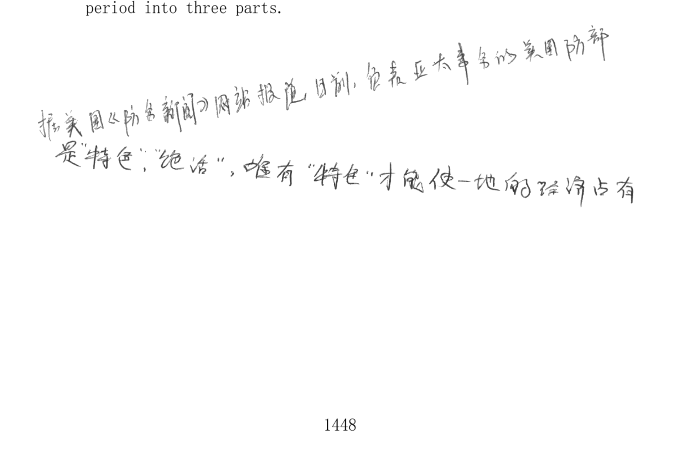 period into three parts.
据美国《防务新闻》网站报道日前，负责亚太事务的美国防部
是“特色”，“绝活”，唯有“特色”才能使一地的经济占有
1448